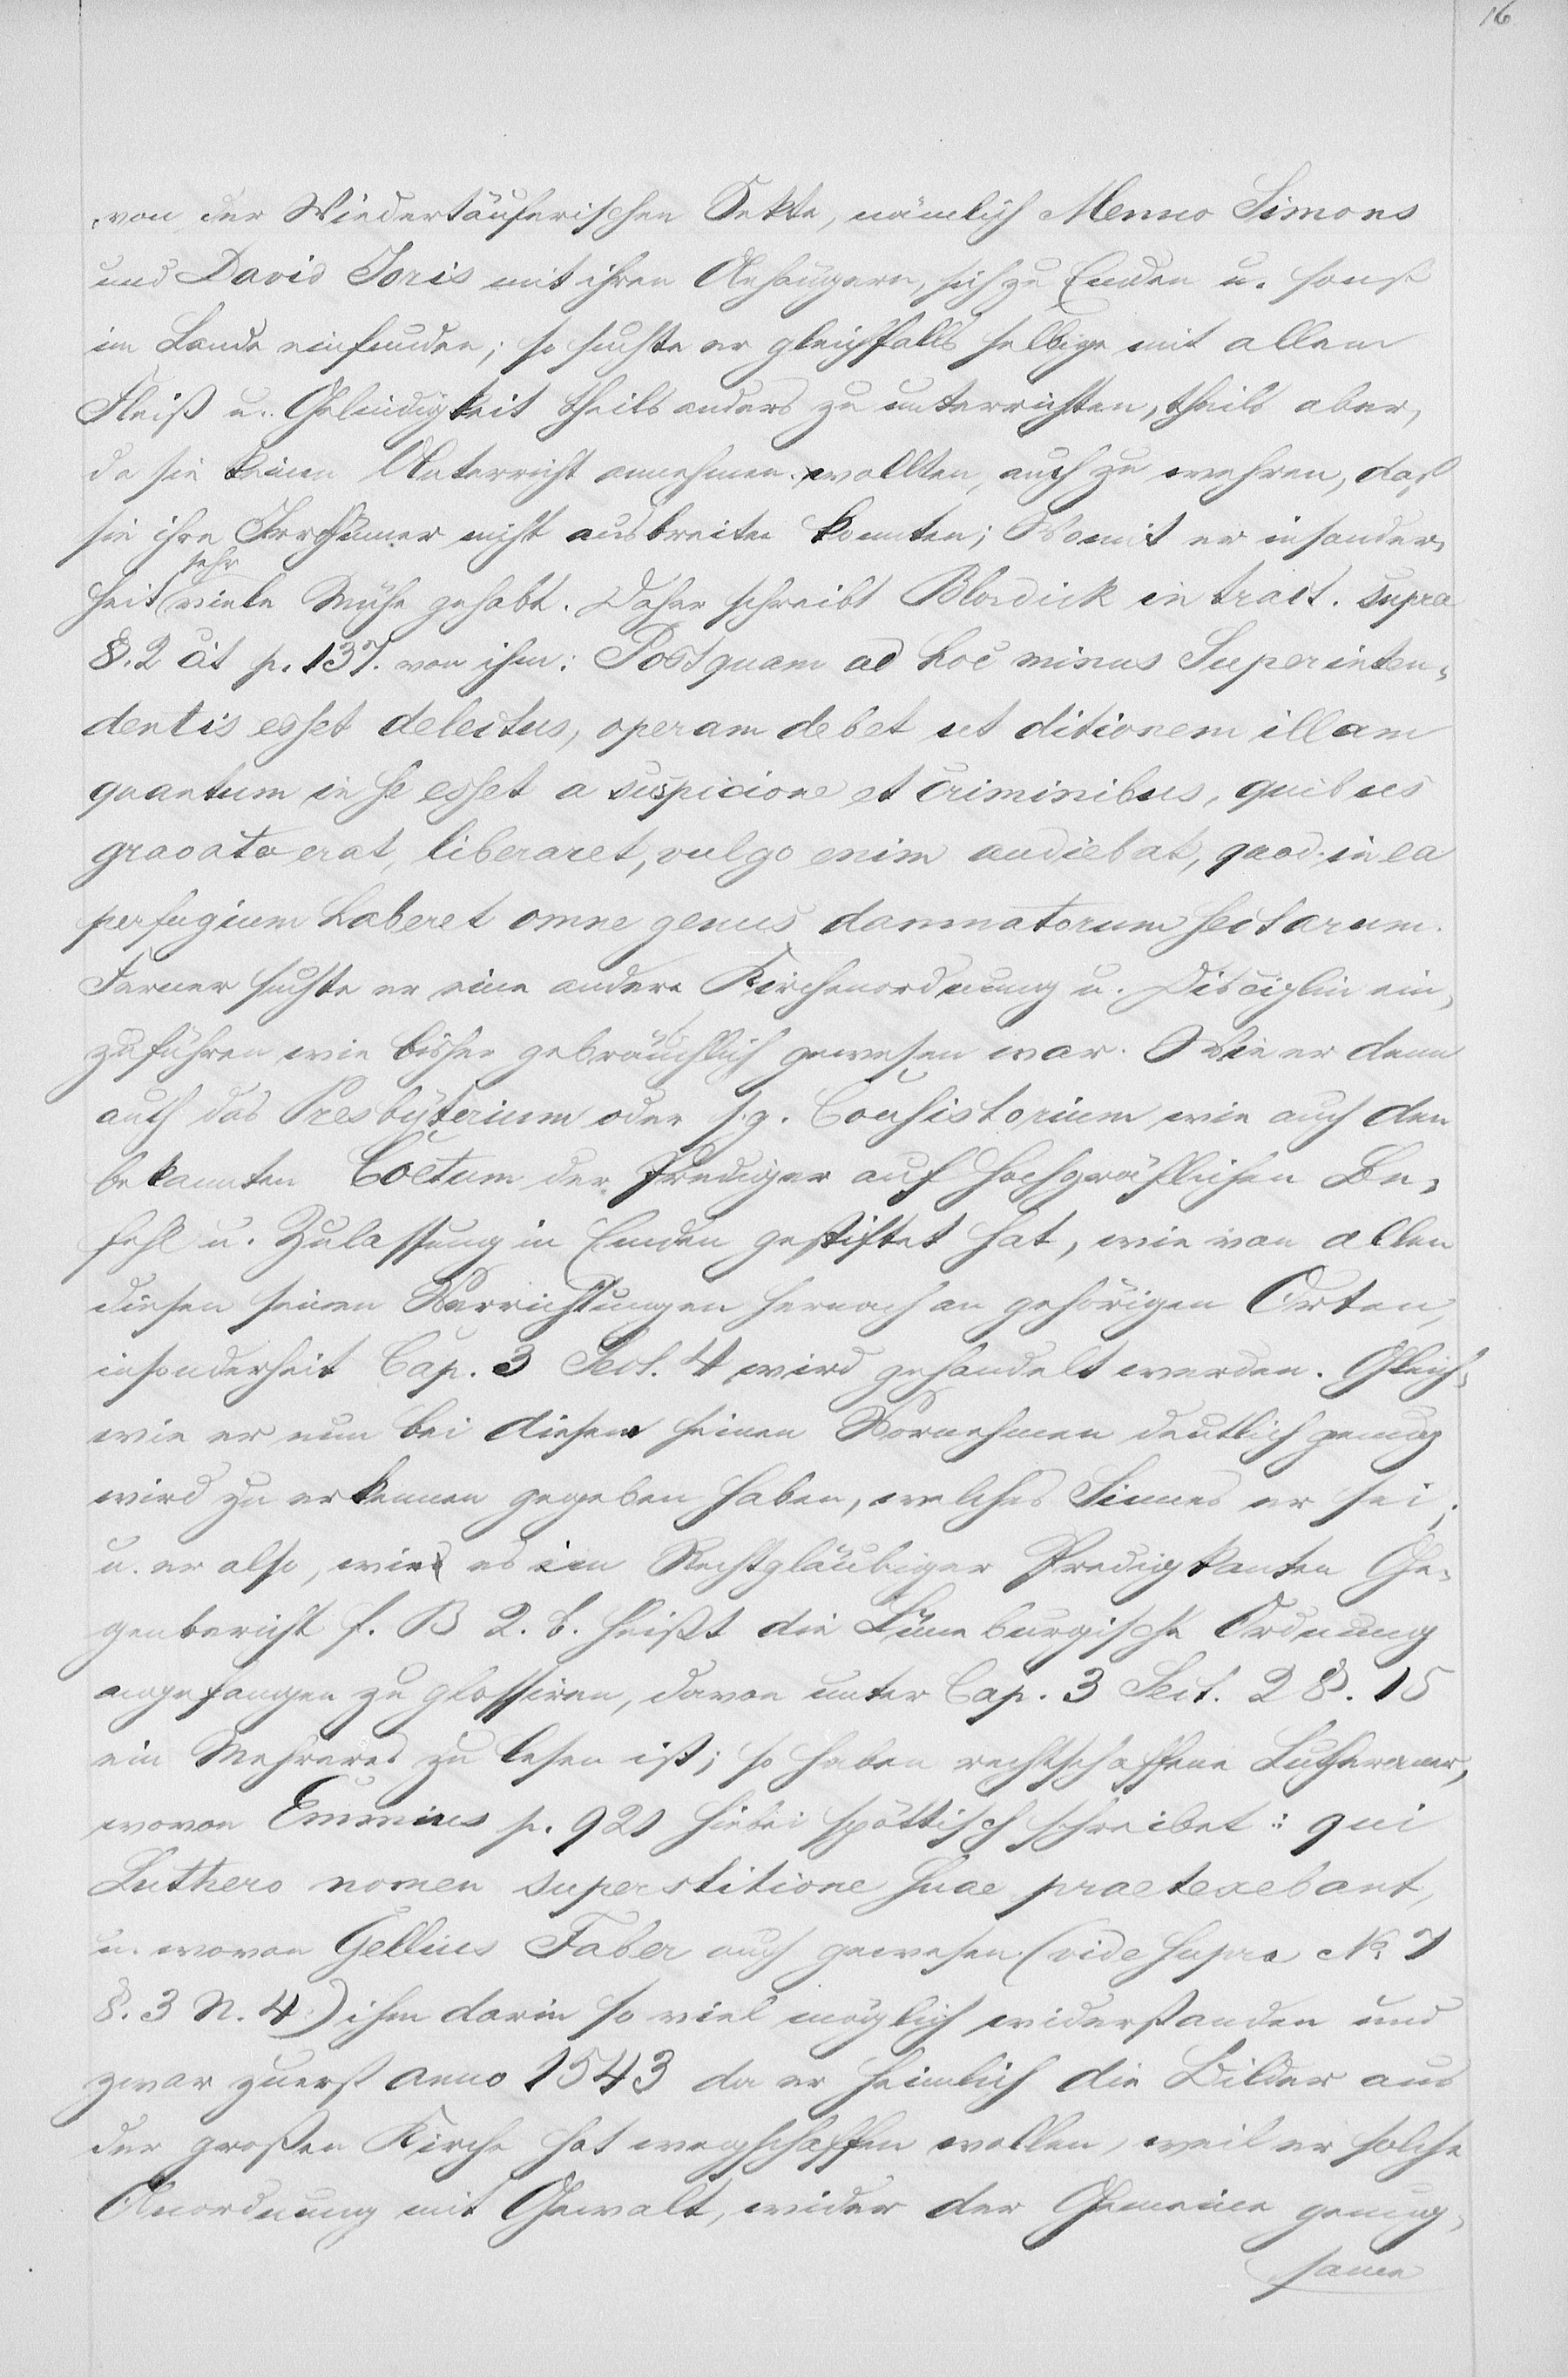 16
von der Wiedertäuferischen Sekte, nämlich Menno Simons
und David Joris mit ihren Anhängern, sich zu Emden u. sonst
im Lande einfunden; so suchte er gleichfalls selbige mit allem
Fleiß u. Gelindigkeit theils anders zu unterrichten, theils aber,
da sie keinen Unterricht annehmen wollten, auch zu wehren, daß
sie ihre Irrthümer nicht ausbreiten konnten; Womit er insonder-
heit sehr viele Mühe gehabt. Daher schreibt Blesdick in tract. supra
§. 2 cit p. 137. von ihm: Postquam ad hoc minus Superinten-
dentis esset delectus, operam debet ut ditionem illam
quantum in se esset a suspicione et criminibus, quibus
gravata erat, liberaret, vulgo enim audiebat, quod in ea
perfugium haberet omne genus damnatorum sectarum.
Ferner suchte er eine andere Kirchenordnung u. Disciplin ein-
zuführen, wie bisher gebräuchlich gewesen war. Wie er denn
auch das Presbyterium oder s.g. Consistorium wie auch den
bekannten Coetum der Prediger auf hochgräflichen Be-
fehl u. Zulassung in Emden gestiftet hat, wie von allen
diesen seinen Verrichtungen hernach an gehörigen Orten,
insonderheit Cap. 3 Sect. 4 wird gehandelt werden. Gleich-
wie er nun bei diesem seinen Vornehmen deutlich genug
wird zu erkennen gegeben haben, welches Sinnes er sei;
u. er also, wie es im Rechtgläubiger Predigkanten Ge-
genbericht f. B 2. b. heißt die Lüneburgische Ordnung
angefangen zu glossiren, davon unter Cap. 3 Sect. 2 §. 15
ein Mehreres zu lesen ist; so haben rechtschaffene Lutheraner,
wovon Emmius p. 921 hiebei spöttisch schreibet: qui
Luthero nomen superstitione suae praetexebant,
u. wovon Gellius Faber auch gewesen (vide supra No. 7
§. 3 N. 4.) ihm darin so viel möglich widerstanden und
zwar zuerst anno 1543 da er heimlich die Bilder aus
der großen Kirche hat wegschaffen wollen, weil er solche
Anordnung mit Gewalt, wider der Gemeine genug-
same